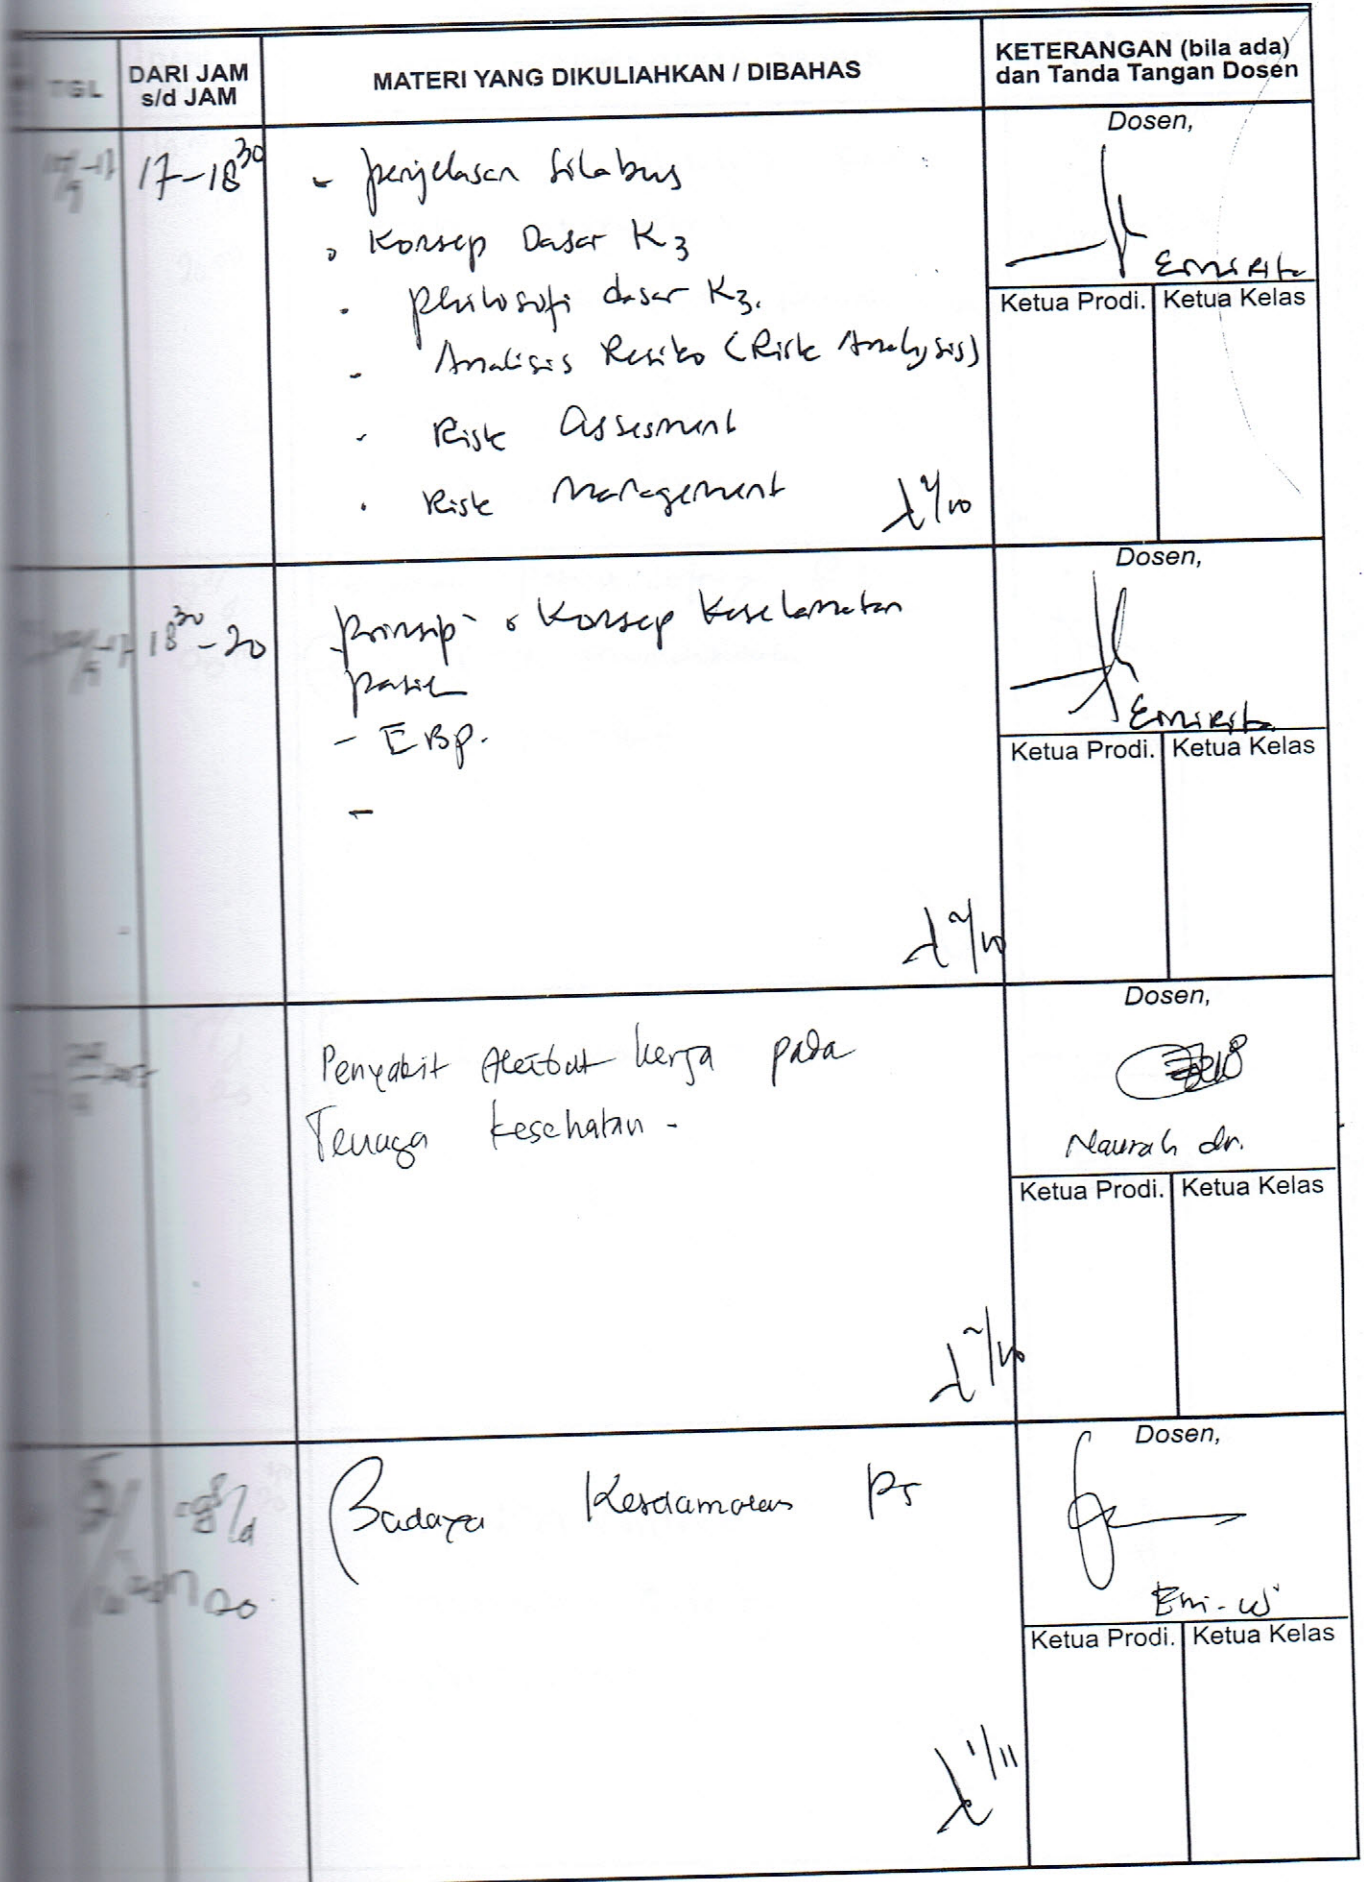 TGL
DARI JAM
s/d JAM
MATERI YANG DIKULIAHKAN / DIBAHAS
KETERANGAN (bila ada)
dan Tanda Tangan Dosen
17-18³⁰
- penjelasan Silabus
Konsep Dasar K3
philosofi dasar K3.
- Analisis Resiko (Risk Analysis)
- Risk Assesment
. Risk Management
2/10
Dosen,
Ketua Prodi.
Ketua Kelas
18³⁰-20
prinsip Konsep Keselamatan
pasien
- EBp.
-
2/10
Dosen,
Ketua Prodi.
Ketua Kelas
Penyakit Akibat kerja pada
Tenaga kesehatan -
2/10
Dosen,
Naurah dr.
Ketua Prodi.
Ketua Kelas
Budaya Keselamatan Ps
1/11
Dosen,
Eni-w
Ketua Prodi.
Ketua Kelas